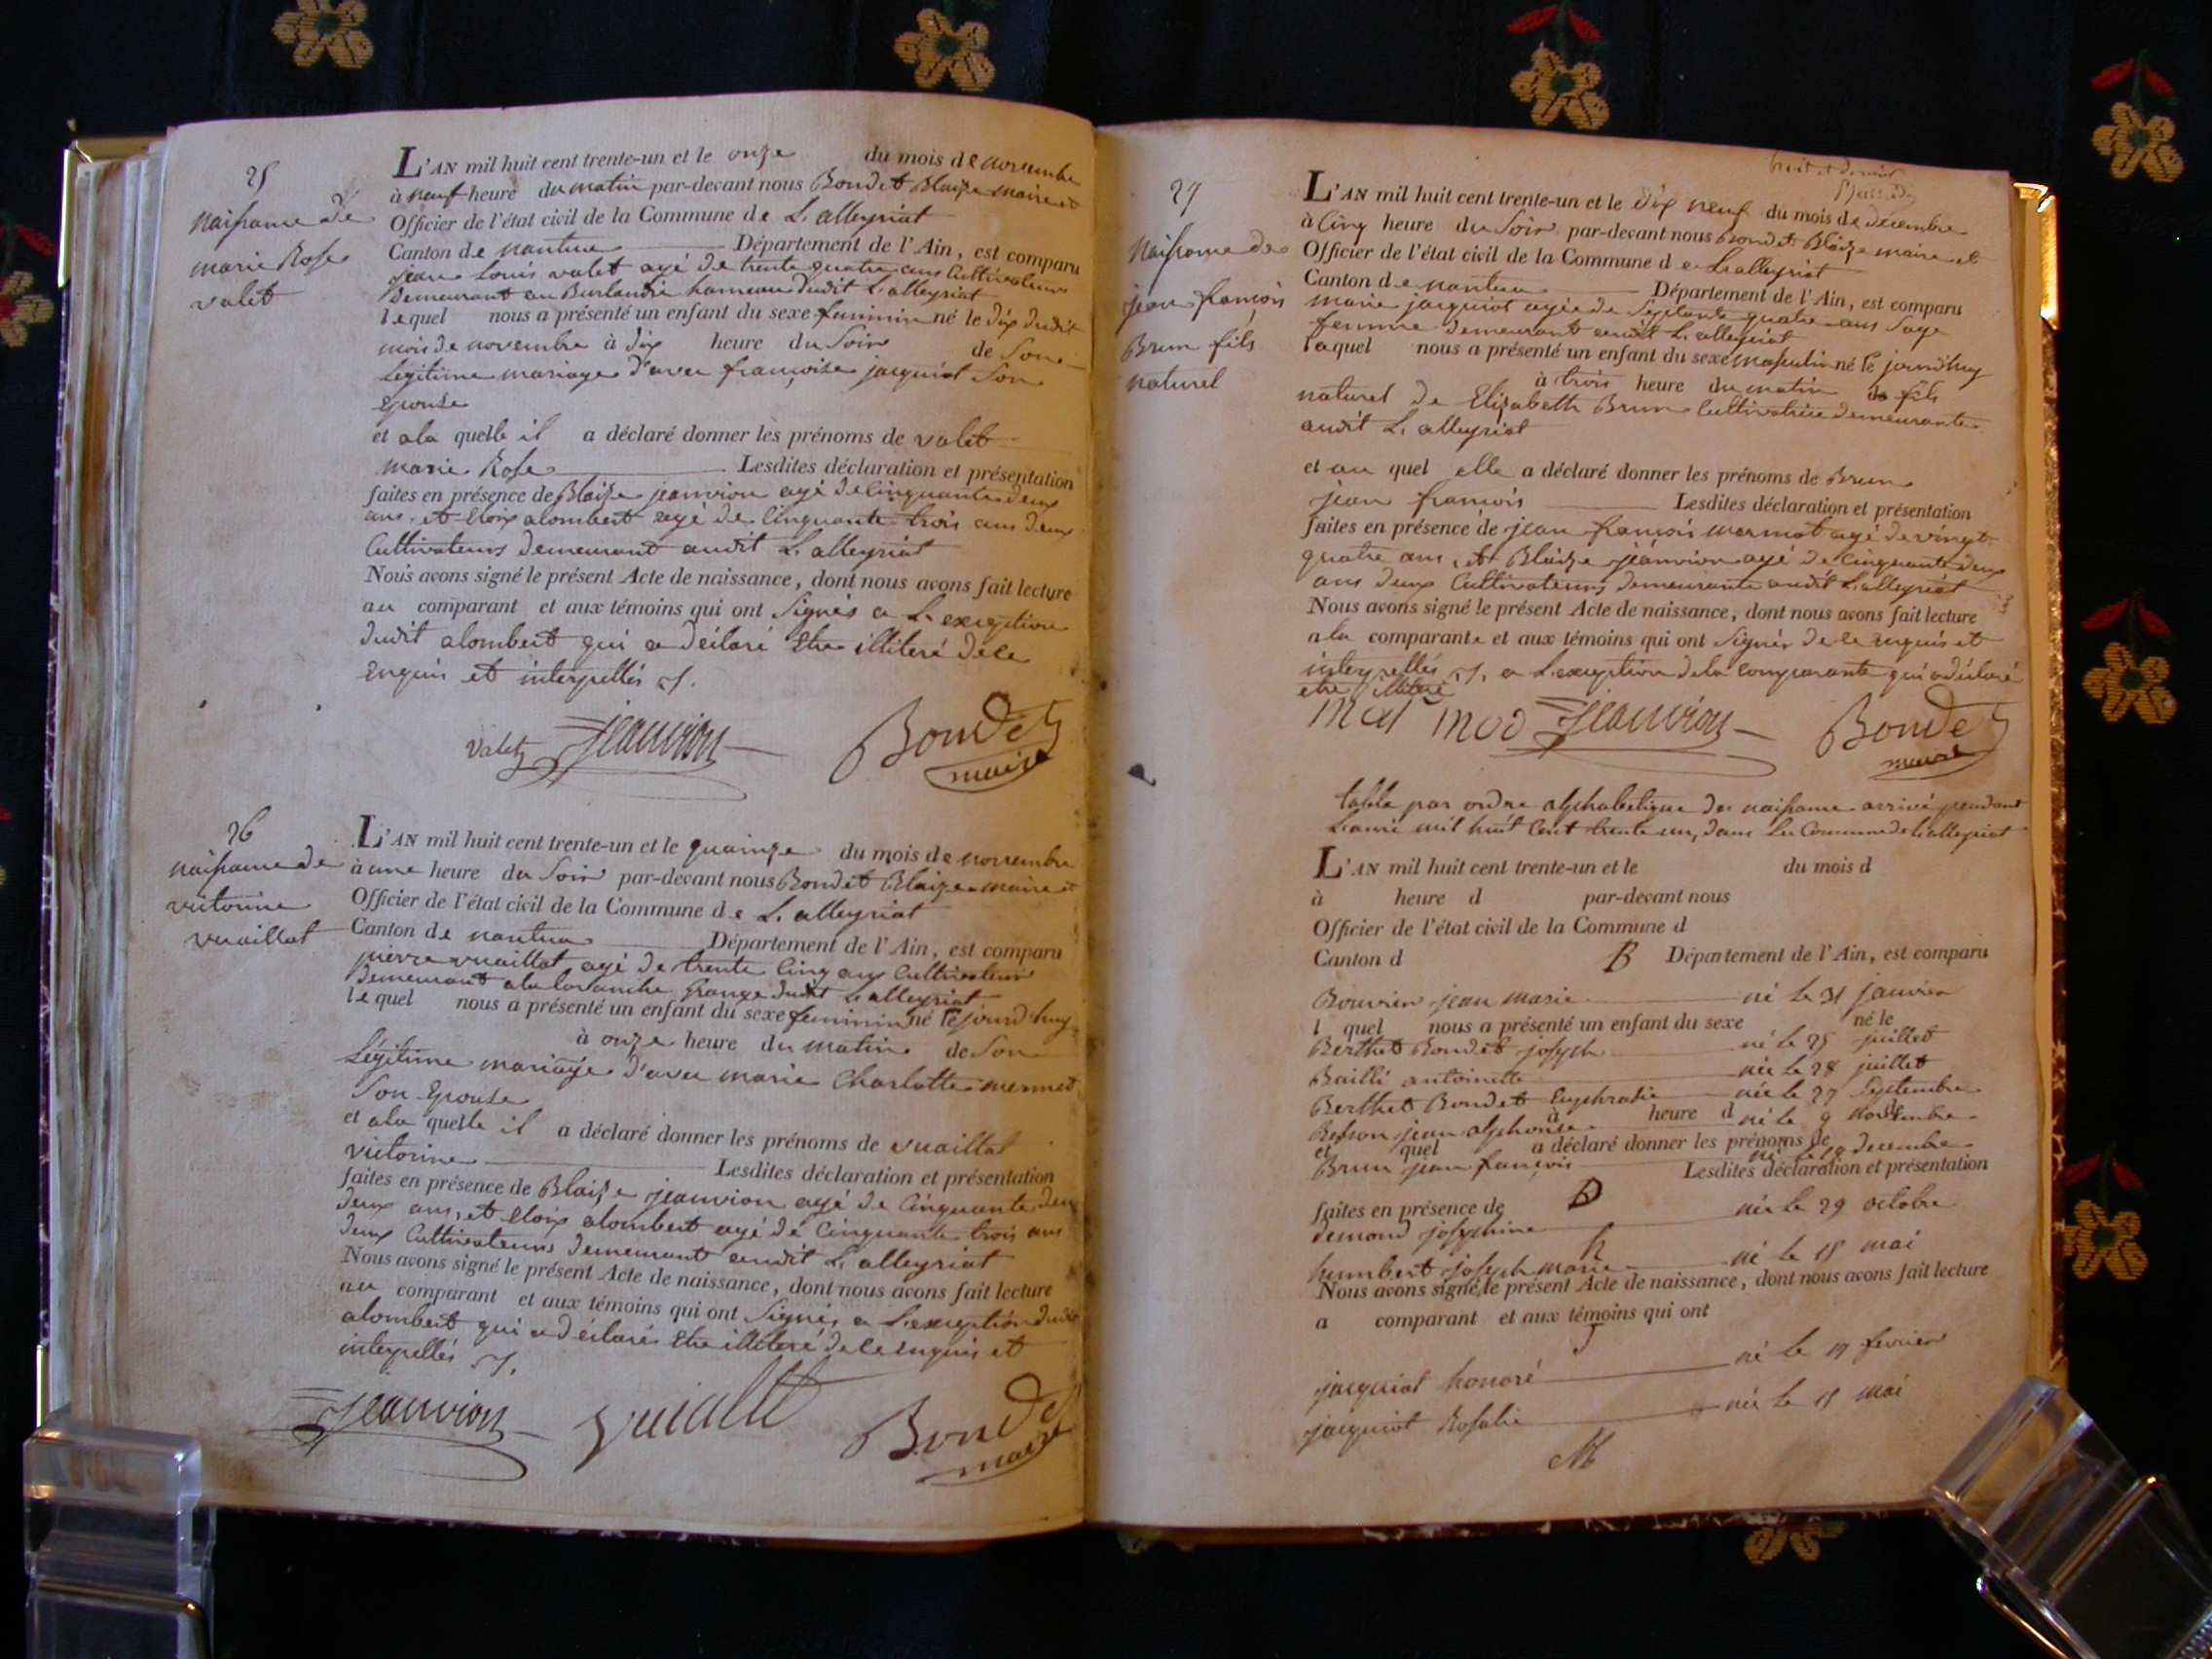 25
naissance de
marie Rose
valet
L'AN mil huit cent trente-un et le onze du mois de novembre
à neuf heure du matin par-devant nous Bondet Blaize maire et
Officier de l'état civil de la Commune de L'alleyriat
Canton de nantua Département de l'Ain, est comparu
jean Louis valet agé de trente quatre ans Cultivateur
demeurant au Burlandie hameau dudit L'alleyriat
lequel nous a présenté un enfant du sexe feminin né le dix dudit
mois de novembre à dix heure du Soir de Son
Légitime mariage d'avec françoise jacquiot Son
Epouse
et ala quelle il a déclaré donner les prénoms de valet
marie Rose Lesdites déclaration et présentation
faites en présence de Blaize jeanvion agé de Cinquante deux
ans, et Eloix alombert agé de Cinquante trois ans deux
Cultivateurs demeurant audit L'alleyriat
Nous avons signé le présent Acte de naissance, dont nous avons fait lecture
au comparant et aux témoins qui ont Signés a L'exception
dudit alombert qui a déclaré Etre illiteré de ce
Enquis et interpellés
Valet Jeanvion Bondet
maire
26
naissance de
victorine
vuaillat
L'AN mil huit cent trente-un et le quainze du mois de novembre
à une heure du Soir par-devant nous Bondet Blaize maire et
Officier de l'état civil de la Commune de L'alleyriat
Canton de nantua Département de l'Ain, est comparu
pierre vuaillat agé de trente Cinq ans Cultivateur
demeurant ala lavanche Grange dudit L'alleyriat
lequel nous a présenté un enfant du sexe feminin né le jourd'huy
à onze heure du matin de Son
Légitime mariage d'avec marie Charlotte mermet
Son Epouse
et ala quelle il a déclaré donner les prénoms de vuaillat
victorine Lesdites déclaration et présentation
faites en présence de Blaize jeanvion agé de Cinquante deu
deux ans, et Eloix alombert agé de Cinquante trois ans
deux Cultivateurs demeurant audit L'alleyriat
Nous avons signé le présent Acte de naissance, dont nous avons fait lecture
au comparant et aux témoins qui ont Signés a L'exception dudit
alombert qui a déclaré Etre illiteré de ce enquis et
interpellés
Jeanvion Bondet
maire
27
naissance de
jean françois
Brun fils
naturel
L'AN mil huit cent trente-un et le dix neuf du mois de décembre
à Cinq heure du Soir par-devant nous Bondet Blaize maire et
Officier de l'état civil de la Commune de L'alleyriat
Canton de nantua Département de l'Ain, est comparu
marie jacquiot agée de Septante quatre ans Sage
femme demeurant audit L'alleyriat
laquel nous a présenté un enfant du sexe masculin né le jourd'huy
à trois heure du matin de fils
naturel de Elizabeth Brun Cultivatrice demeurante
audit L'alleyriat
et au quel elle a déclaré donner les prénoms de Brun
jean françois Lesdites déclaration et présentation
faites en présence de jean françois mermet agé de vingt
quatre ans, et Blaize jeanvion agé de Cinquante deux
ans deux Cultivateurs demeurante audit L'alleyriat
Nous avons signé le présent Acte de naissance, dont nous avons fait lecture
a la comparante et aux témoins qui ont Signés de ce enquis et
interpellés a L'exception de la comparante qui a déclaré
etre illiteré
Jeanvion Bondet
maire
table par ordre alphabetique des naissance arrivé pendant
L'anné mil huit Cent trente un, dans La Commune de L'alleyriat
L'AN mil huit cent trente-un et le du mois d
à heure d par-devant nous
Officier de l'état civil de la Commune d
Canton d B Département de l'Ain, est comparu
Bouvier jean marie né le 31 janvier
l quel nous a présenté un enfant du sexe né le
Berthet Bondet joseph né le 25 juillet
Bailli antoinette née le 28 juillet
Berthet Bondet Euphrasie née le 27 Septembre
à heure d de
jean alphonse né le 9 novembre
et quel a déclaré donner les prénoms de
Brun jean françois né le 19 decembre
Lesdites déclaration et présentation
faites en présence de D
demond josephine née le 29 octobre
h
humbert joseph marie né le 15 mai
Nous avons signé le présent Acte de naissance, dont nous avons fait lecture
a comparant et aux témoins qui ont
J
jacquiot honoré né le 17 fevrier
jacquiot Rosalie née le 15 mai
M